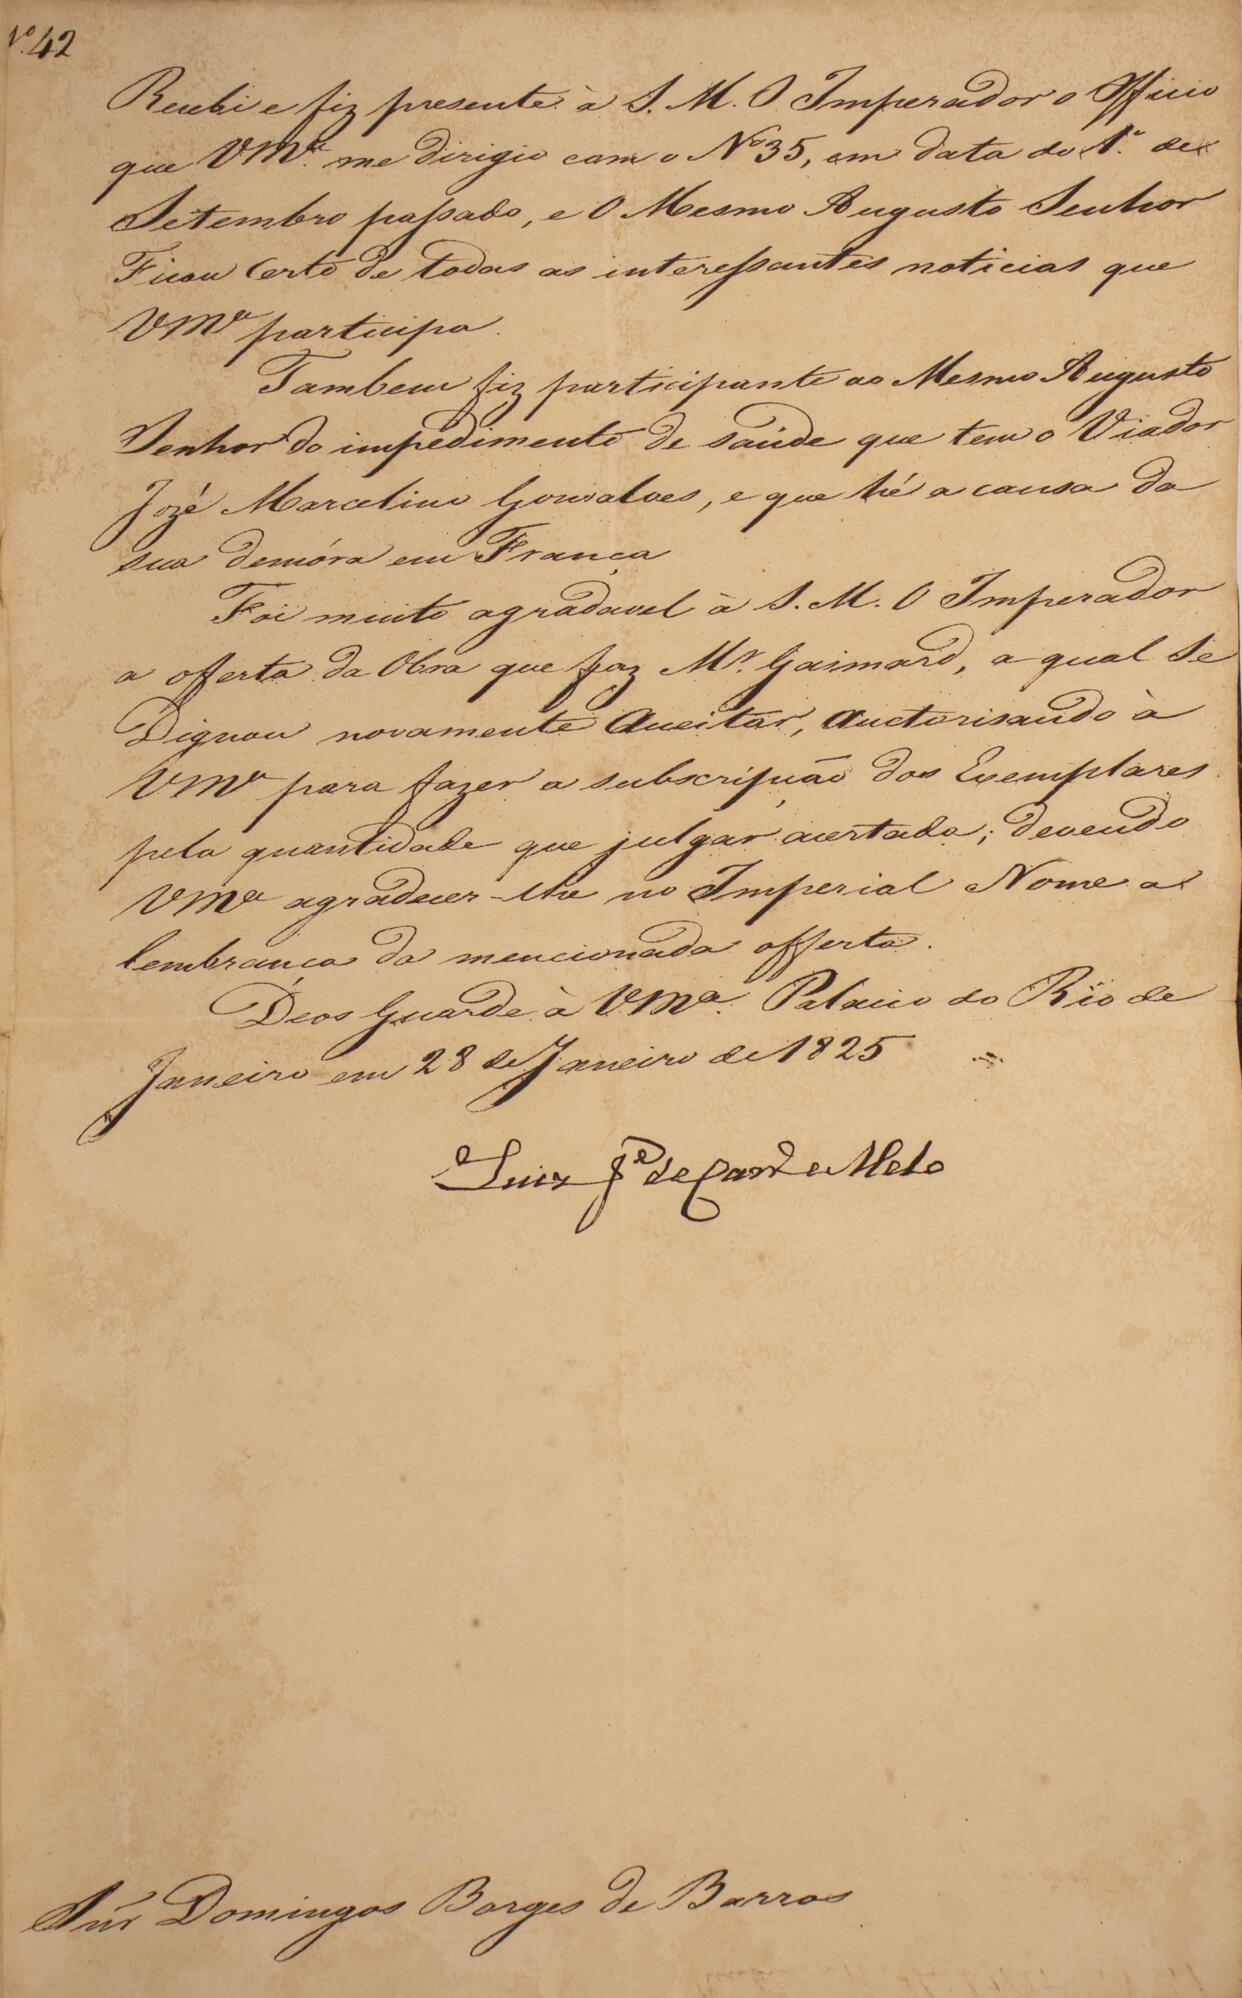 Nº 42
Recebi e fiz presente à S. M. O Imperador o Officio
que VMce. me dirigio com o Nº 35, em data do 1º. de
Setembro passado, e O Mesmo Augusto Senhor
Ficou Certo de todas as interessantes noticias que
VMce participa.
Tambem fiz participante ao Mesmo Augusto
Senhor do impedimento de saúde que tem o Viador
Jozé Marcelino Gonsalves, e que hé a causa da
sua demóra em França
Foi muito agradavel à S. M. O Imperador
a offerta da Obra que faz Mr. Gaimard, a qual Se
Dignou novamente Aceitar, Auctorisando à
VMce para fazer a subscripção dos Exemplares
pela quantidade que julgar acertada; devendo
VMce agradecer-lhe no Imperial Nome a
lembrança da mencionada offerta.
Deos Guarde à VMce. Palacio do Rio de
Janeiro em 28 de Janeiro de 1825
Luiz Je de Carvo e Mello
Snr Domingos Borges de Barros